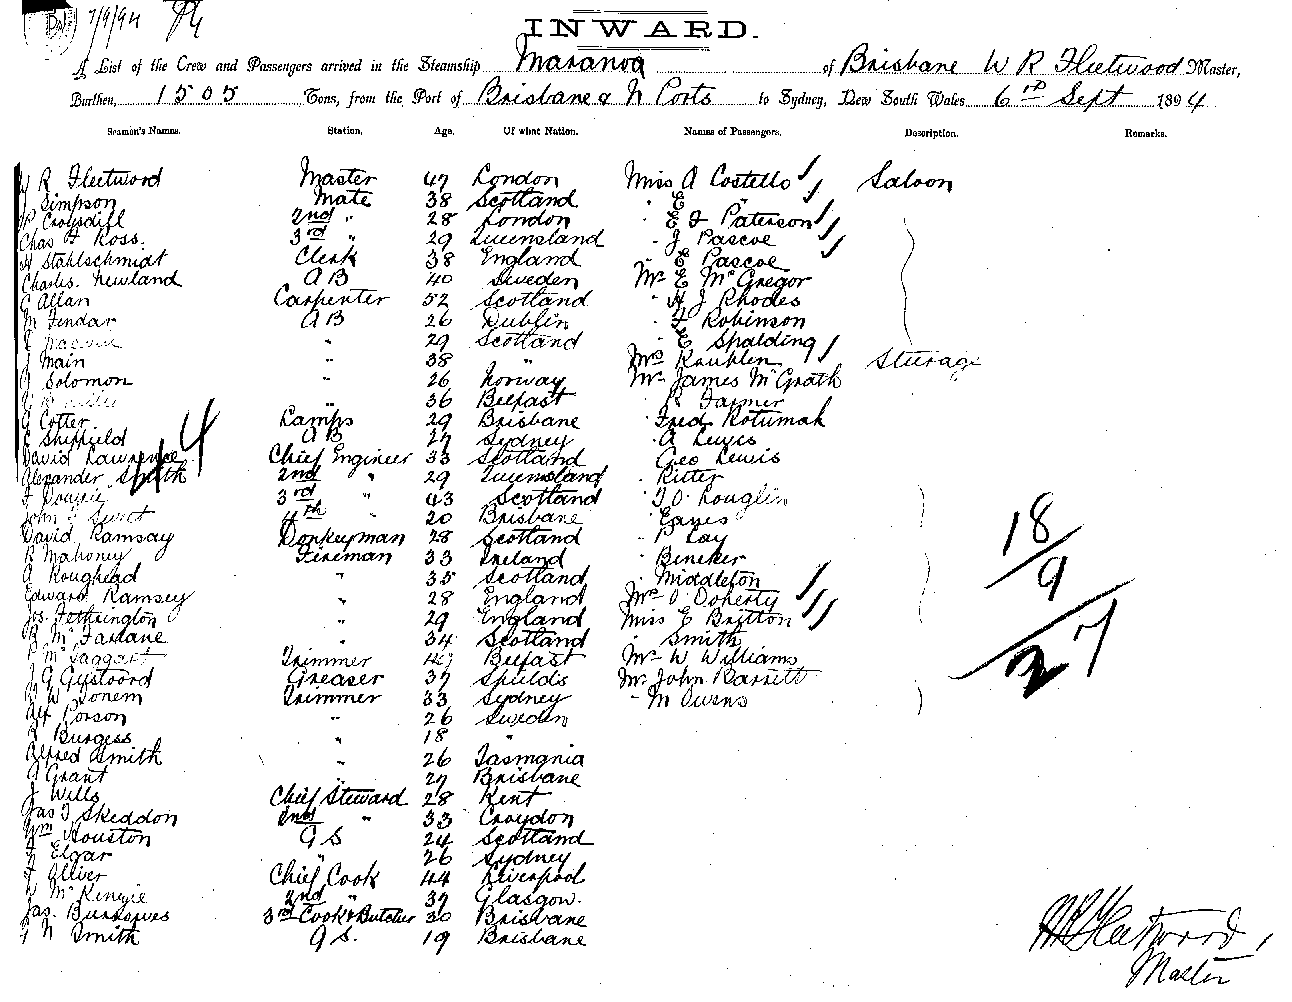 7/9/94
INWARD.
A List of the Crew and Passengers arrived in the Steamship Maranoa of Brisbane W R Fleetwood Master,
Burthen, 1505 Tons, from the Port of Brisbane & N Ports to Sydney, New South Wales 6th Sept 1894
Seamen's Names. Station. Age. Of what Nation. Names of Passengers. Description. Remarks.
W R Fleetwood Master 47 London Miss A Costello Saloon
J Simpson Mate 38 Scotland " E
P Croysdill 2nd " 28 London " E F Paterson
Chas F Ross. 3rd " 29 Queensland " J Pascoe
H Stahlschmidt Clerk 38 England " E Pascoe
Charles Newland AB 40 Sweden Mr E McGregor
C Allan Carpenter 52 Scotland " H J Rhodes
M Fendar AB 26 Dublin " F Robinson
" 29 Scotland " E Spalding
J Main " 38 " Mrs Steerage
J Solomon " 26 Norway Mr James McGrath
" 36 Belfast " R Farmer
G Cotter Lamps 29 Brisbane " Fred Rotumah
Sheffield AB 27 Sydney " A Lewis
David Lawrence Chief Engineer 33 Scotland " Geo Lewis
Alexander Smith 2nd " 29 Queensland " Ritter
44
3rd " 43 Scotland " Loughlin
John 4th " 20 Brisbane " Eaves
David Ramsay Donkeyman 28 Scotland " P Lay
R Mahoney Fireman 33 Ireland " Beneker
A Roughead " 35 Scotland " Middleton
Edward Ramsey " 28 England Mrs O'Doherty
Jos. Fetherington " 29 England Miss E Britton
R McFarlane " 34 Scotland " Smith
P McTaggart Trimmer Belfast Mr W Williams
J G Greaser 37 Shields Mr John Barrett
W Trimmer 33 Sydney " M Owens
Porson " 26 Sweden
R Burgess " 18 "
Alfred Smith " 26 Tasmania
A Grant " 27 Brisbane
J Wills Chief Steward 28 Kent
Jas J Skeddon 2nd " 33 Croydon
Wm Houston G S 24 Scotland
F Elgar " 26 Sydney
F Oliver Chief Cook 44 Liverpool
W McKenzie 2nd " 37 Glasgow.
Jas. Burrowes 3rd Cook & Butcher 30 Brisbane
N Smith G S. 19 Brisbane
18
9
27
W R Fleetwood
Master